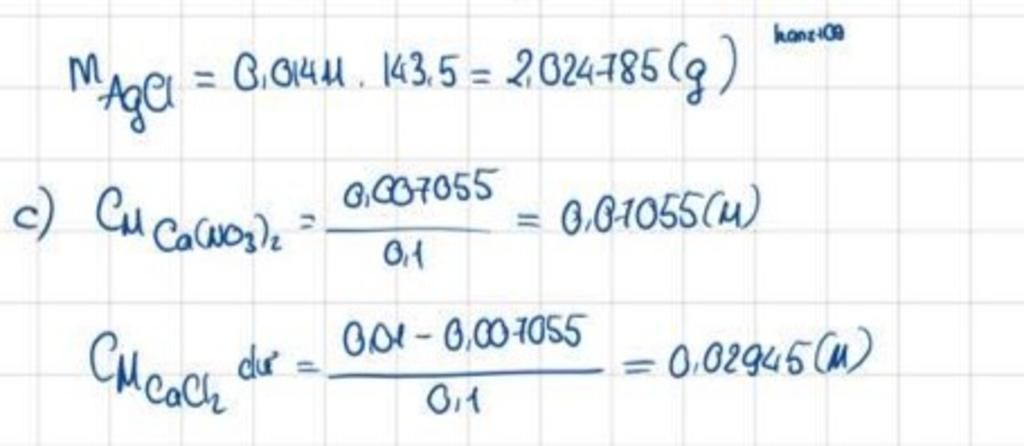 hanz108
m AgCl = 0,01411 . 143,5 = 2,024785 (g)
c) CM Ca(NO3)2 = 0,007055 / 0,1 = 0,07055 (M)
CM CaCl2 dư = 0,01 - 0,007055 / 0,1 = 0,02945 (M)